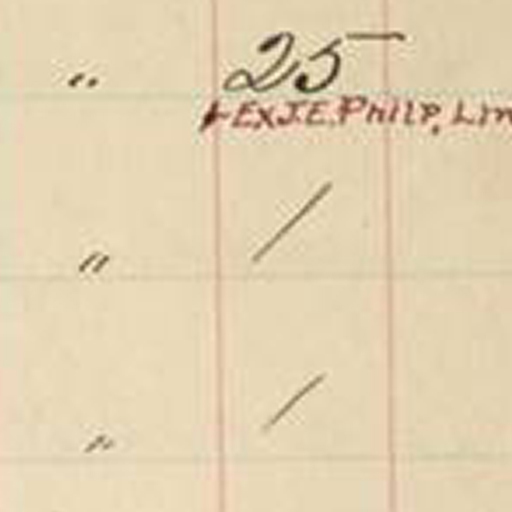 " 25
Ex J.E. Philp, Lin
" /
" /